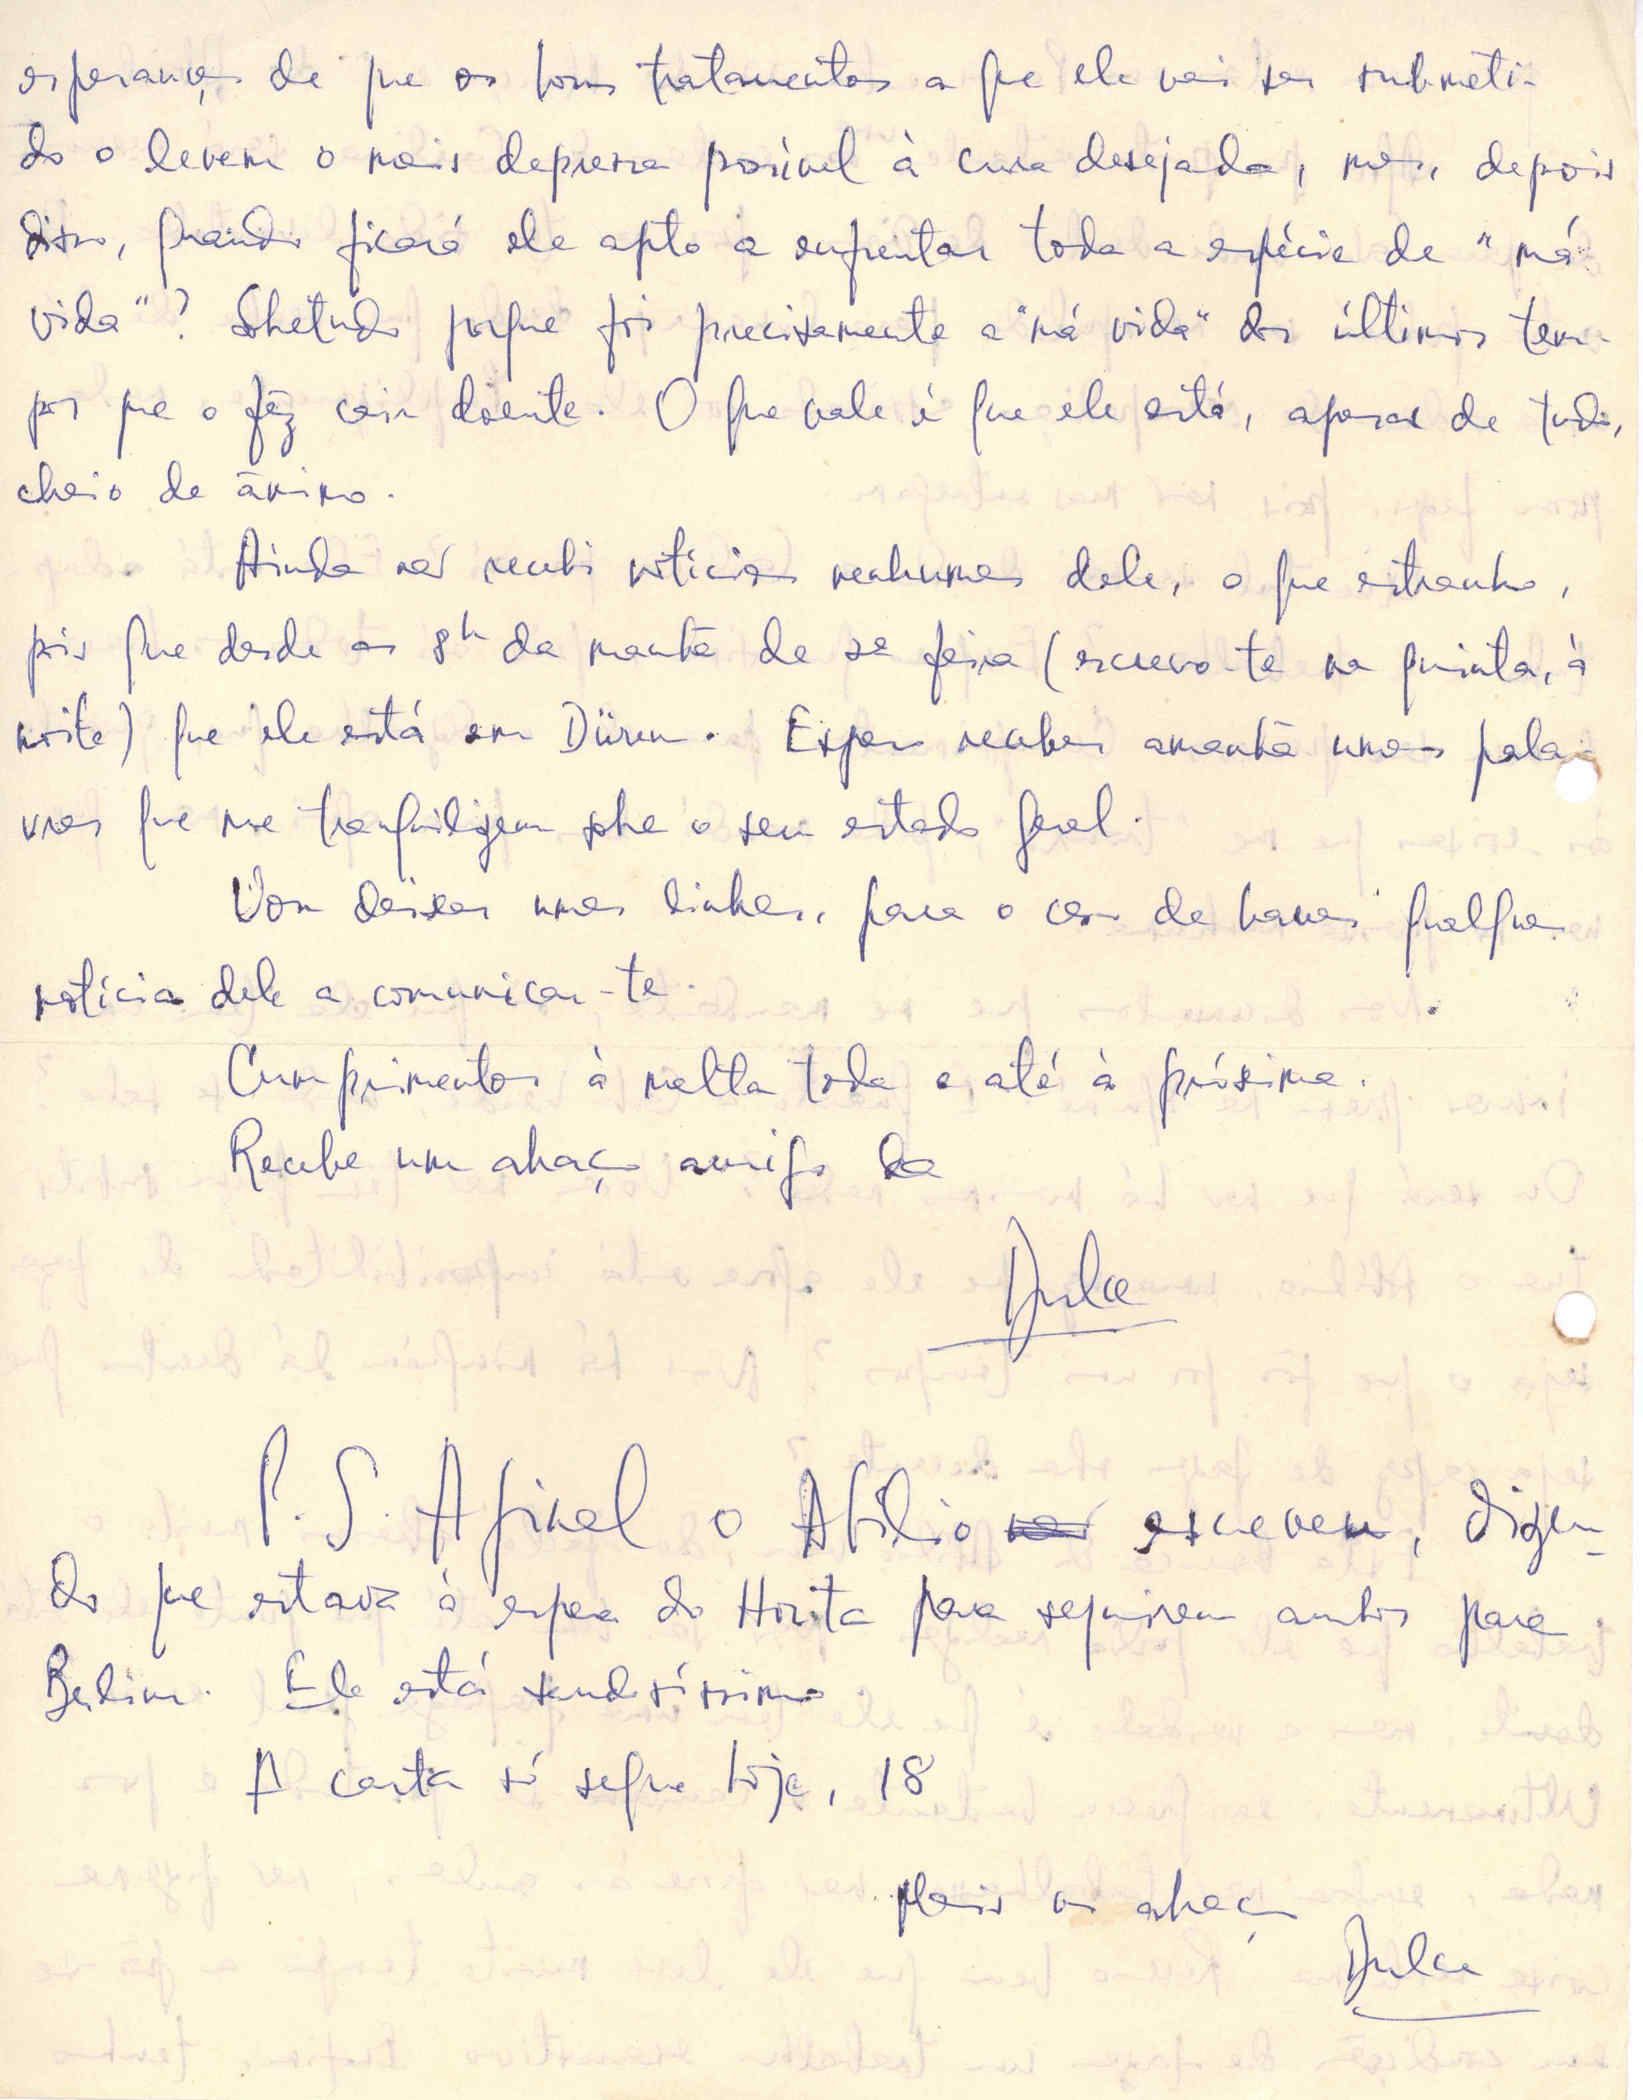 esperanças de que os bons tratamentos a que ele vai ser submeti-
do o levem o mais depressa possível à cura desejada, mas, depois
disso, quando ficará ele apto a enfrentar toda a espécie de "má
vida"? Sobretudo porque foi precisamente a "má vida" dos últimos tem-
pos que o fêz cair doente. O que vale é que ele está, apesar de tudo,
cheio de ânimo.
Ainda não recebi notícias nenhumas dele, o que estranho,
pois que desde as 8h da manhã de feira (escrevo-te na quinta, à
noite) que ele está em Düren. Espero receber amanhã umas pala-
vras que me tranquilizem sobre o seu estado geral.
Vou deixar umas linhas, para o caso de haver qualquer
notícia dele a comunicar-te.
Cumprimentos à malta toda e até à próxima.
Recebe um abraço amigo da
Dulce
P.S. Afinal o Abílio não escreveu, dizen-
do que estava à espera do Horita para seguirem ambos para
Berlim. Ele está saudosíssimo.
A carta só segue hoje, 18
Mais um abraço
Dulce